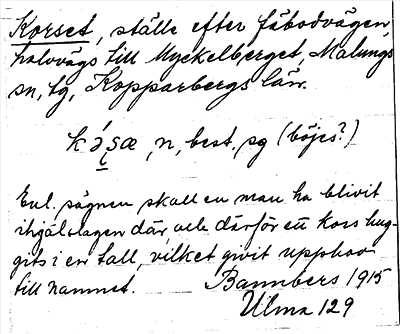 Korset, ställe efter fäbodvägen,
halvvägs till Myckelberget, Malungs
sn, tg, Kopparbergs län.
n, best, sg (böjes?)
Enl. sägnen skall en man ha blivit
ihjälslagen där, och därför ett kors hug-
gits i en tall, vilket givit upphov
till namnet. Bannbers 1915
Ulma 129